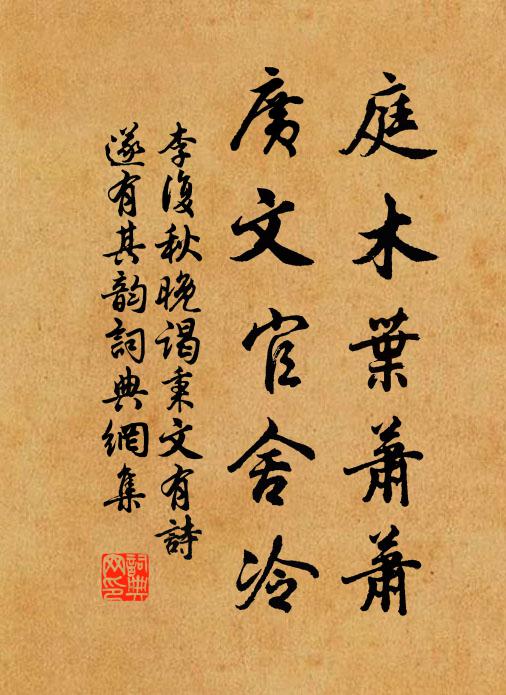 庭木葉蕭蕭
廣文官舍冷
李復秋晚謁秉文有詩
遂有其韵詞典網集
詞典网印